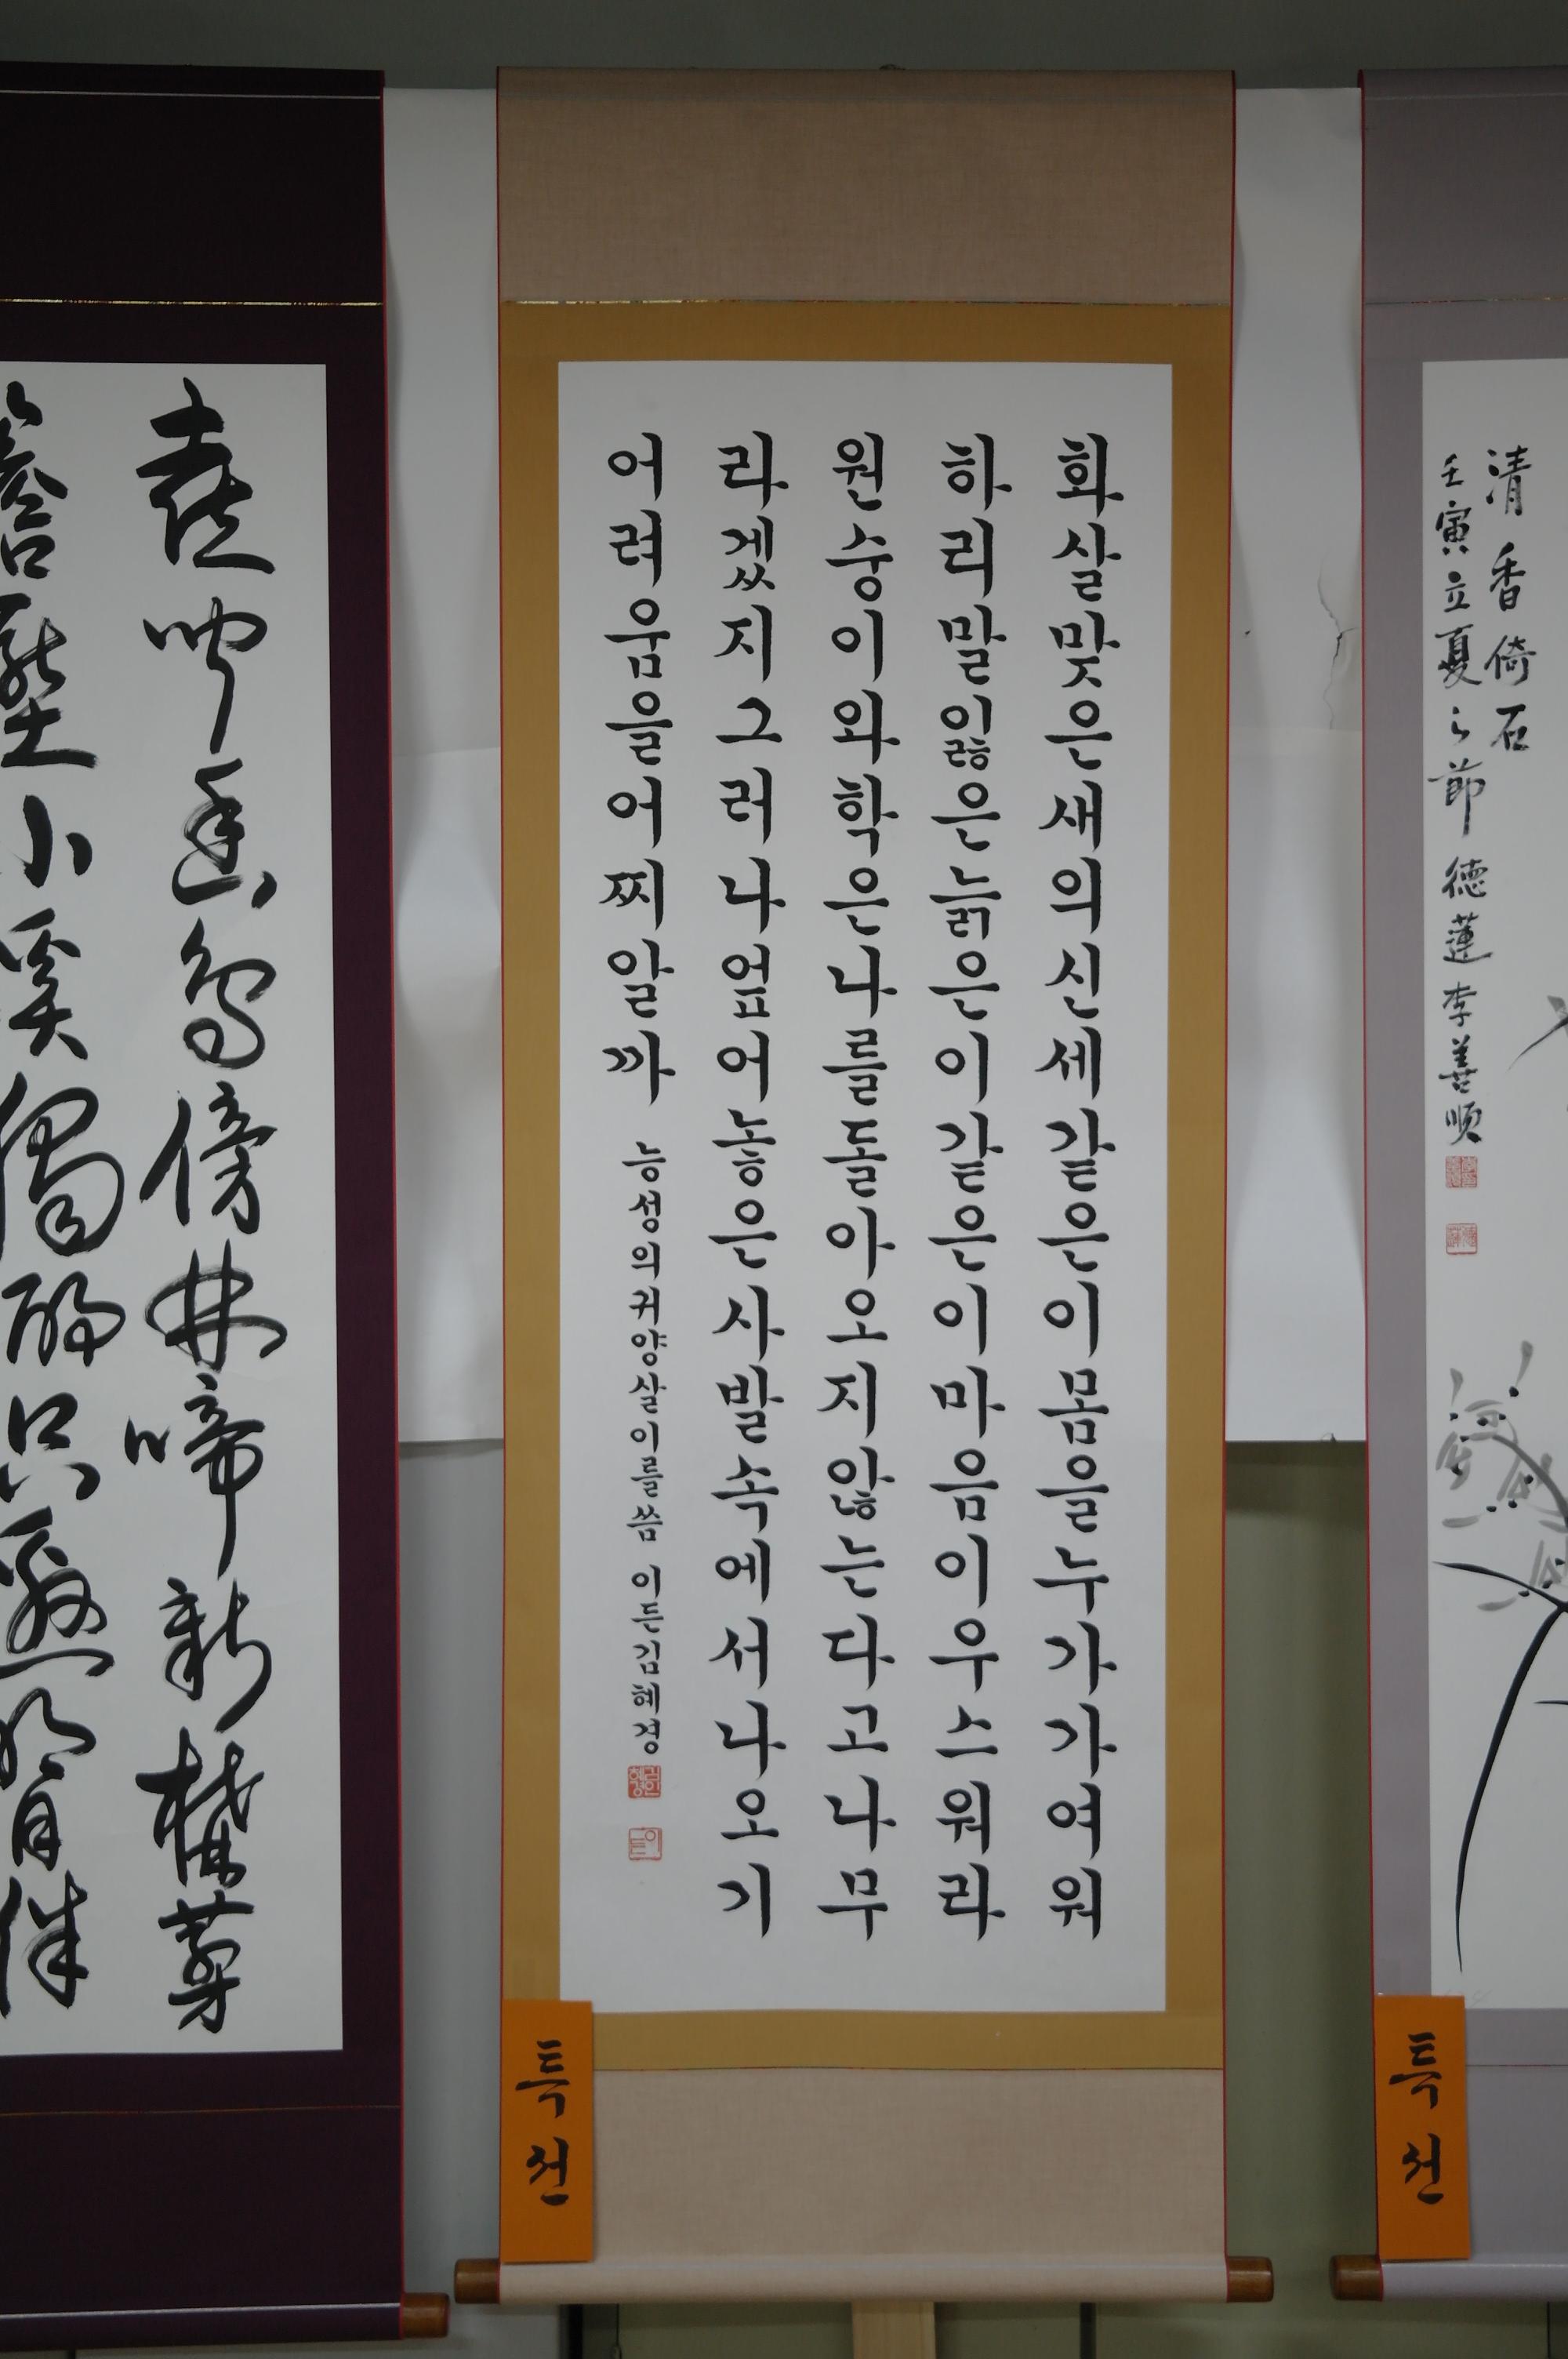 清香倚石
壬寅立夏之節 德蓮 李善順
화살맞은새의신세같은이몸을누가가여워
하리말잃은늙은이같은이마음이우스워라
원숭이와학은나를돌아오지않는다고나무
라겠지그러나엎어놓은사발속에서나오기
어려움을어찌알까 능성의귀양살이를씀 이든김혜경
喜聞幽鳥傍林啼新構茅
簷壓小溪獨酌只邀明月伴
특선
특선